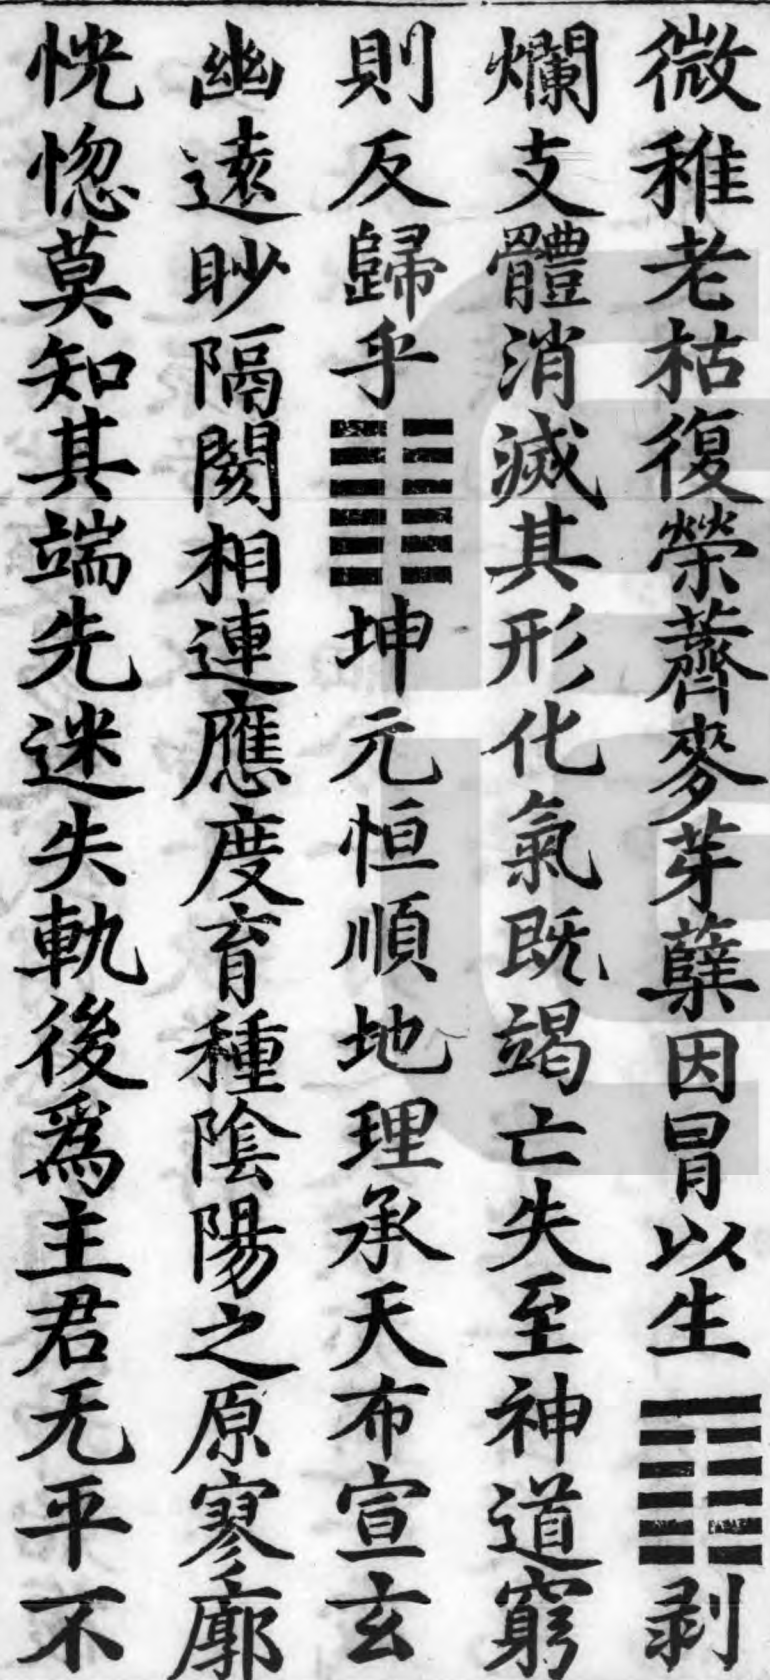 微稚老枯復榮薺麥芽蘖因冒以生䷖剥
爛支體消滅其形化氣既竭亡失至神道窮
則反歸乎䷁坤元恒順地理承天布宣玄
幽遠眇隔閡相連應度育種陰陽之原寥廓
恍惚莫知其端先迷失軌後爲主君无平不